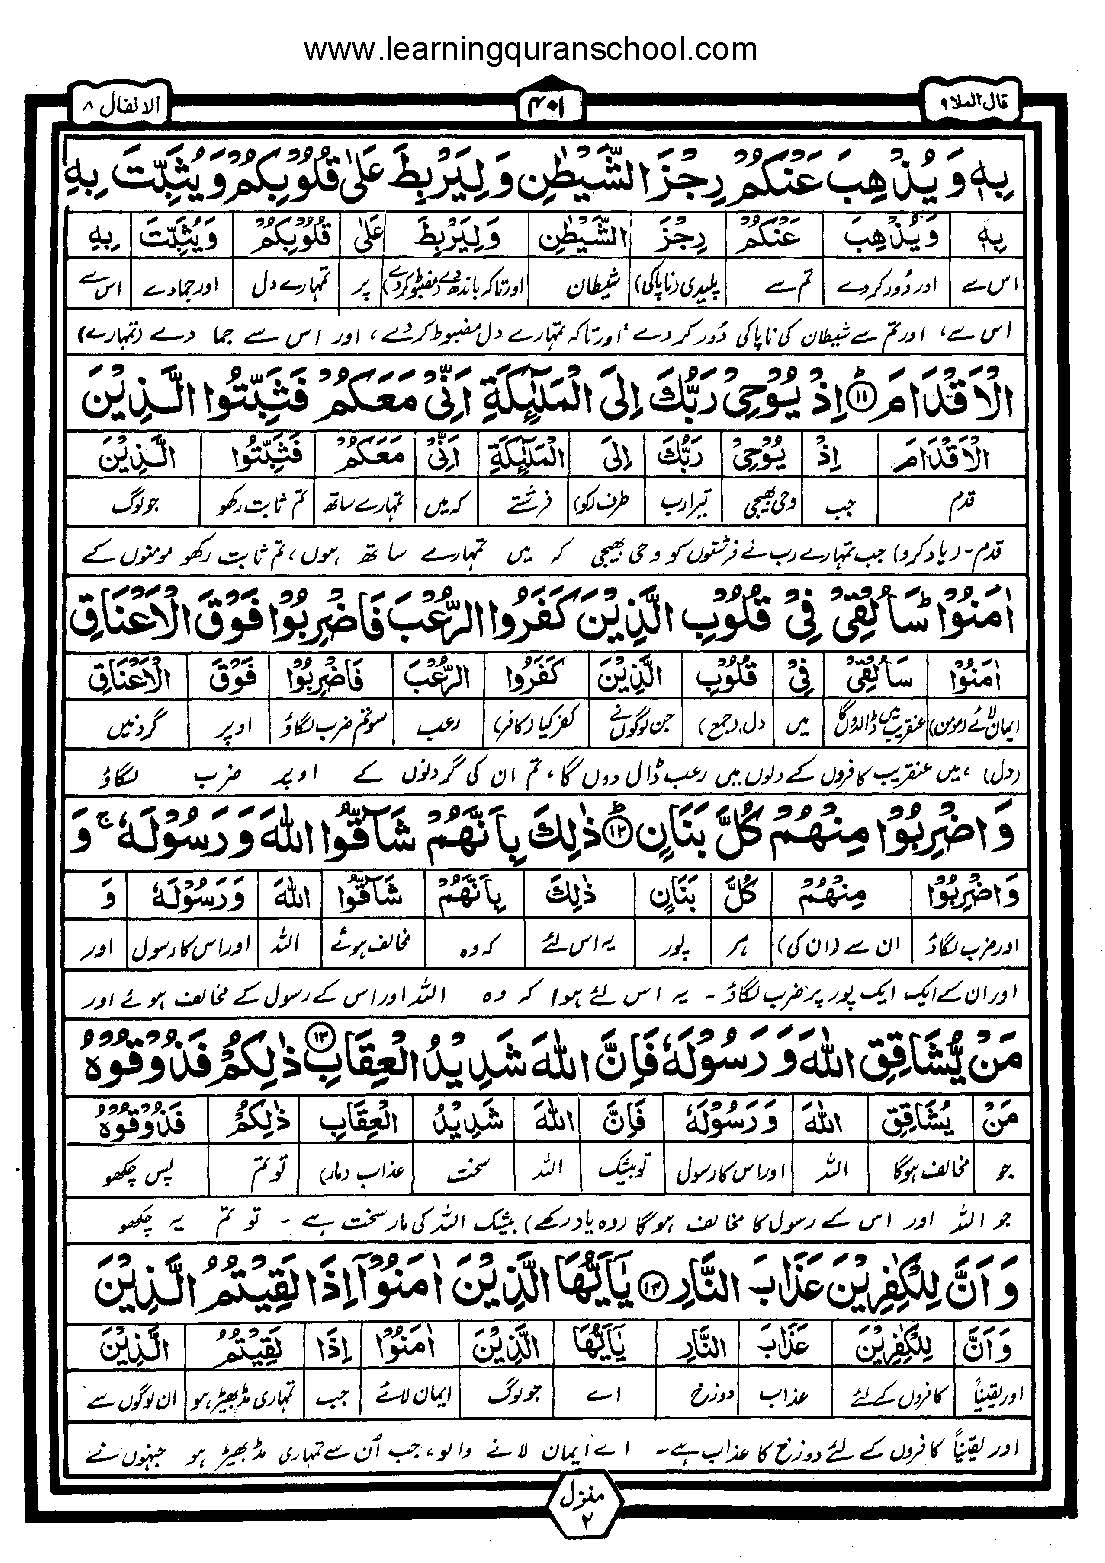 www.learningquranschool.com
قال الملا ٩
٤٠١
الانفال ٨
بِهٖ وَ يُذْهِبَ عَنْكُمْ رِجْزَ الشَّيْطٰنِ وَ لِيَرْبِطَ عَلٰى قُلُوْبِكُمْ وَ يُثَبِّتَ بِهِ
بِهٖ وَيُذْهِبَ عَنْكُمْ رِجْزَ الشَّيْطٰنِ وَلِيَرْبِطَ عَلٰى قُلُوْبِكُمْ وَيُثَبِّتَ بِهِ
اس سے اور دُور کر دے تم سے پلیدی (ناپاکی) شیطان اور تاکہ باندھ دے (مضبوط کر دے) پر تمہارے دل اور جما دے اس سے
اس سے، اور تم سے شیطان کی ناپاکی دُور کر دے اور تاکہ تمہارے دل مضبوط کر دے، اور اس سے جما دے (تمہارے)
الْاَقْدَامَ ۝١١ اِذْ يُوْحِىْ رَبُّكَ اِلَى الْمَلٰٓئِكَةِ اَنِّىْ مَعَكُمْ فَثَبِّتُوا الَّذِيْنَ
الْاَقْدَامَ اِذْ يُوْحِىْ رَبُّكَ اِلَى الْمَلٰٓئِكَةِ اَنِّىْ مَعَكُمْ فَثَبِّتُوا الَّذِيْنَ
قدم جب وحی بھیجی تیرا رب طرف (کو) فرشتے کہ میں تمہارے ساتھ تم ثابت رکھو جو لوگ
قدم۔ (یاد کرو) جب تمہارے رب نے فرشتوں کو وحی بھیجی کہ میں تمہارے ساتھ ہوں، تم ثابت رکھو مومنوں کے
اٰمَنُوْا ؕ سَاُلْقِىْ فِىْ قُلُوْبِ الَّذِيْنَ كَفَرُوا الرُّعْبَ فَاضْرِبُوْا فَوْقَ الْاَعْنَاقِ
اٰمَنُوْا سَاُلْقِىْ فِىْ قُلُوْبِ الَّذِيْنَ كَفَرُوا الرُّعْبَ فَاضْرِبُوْا فَوْقَ الْاَعْنَاقِ
ایمان لائے (مومن) عنقریب میں ڈالدوں گا میں دل (جمع) جن لوگوں نے کفر کیا (کافر) رعب سو تم ضرب لگاؤ اوپر گردنیں
(دل)، میں عنقریب کافروں کے دلوں میں رعب ڈال دوں گا، تم ان کی گردنوں کے اوپر ضرب لگاؤ
وَ اضْرِبُوْا مِنْهُمْ كُلَّ بَنَانٍ ۝١٢ ذٰلِكَ بِاَنَّهُمْ شَآقُّوا اللّٰهَ وَ رَسُوْلَهٗ ۚ وَ
وَاضْرِبُوْا مِنْهُمْ كُلَّ بَنَانٍ ذٰلِكَ بِاَنَّهُمْ شَآقُّوا اللّٰهَ وَرَسُوْلَهٗ وَ
اور ضرب لگاؤ ان سے (ان کی) ہر پور یہ اس لئے کہ وہ مخالف ہوئے اللہ اور اس کا رسول اور
اور ان کے ایک ایک پور پر ضرب لگاؤ۔ یہ اس لئے ہوا کہ وہ اللہ اور اس کے رسول کے مخالف ہوئے اور
مَنْ يُّشَاقِقِ اللّٰهَ وَ رَسُوْلَهٗ فَاِنَّ اللّٰهَ شَدِيْدُ الْعِقَابِ ۝١٣ ذٰلِكُمْ فَذُوْقُوْهُ
مَنْ يُّشَاقِقِ اللّٰهَ وَرَسُوْلَهٗ فَاِنَّ اللّٰهَ شَدِيْدُ الْعِقَابِ ذٰلِكُمْ فَذُوْقُوْهُ
جو مخالف ہوگا اللہ اور اس کا رسول تو بیشک اللہ سخت عذاب (مار) تو تم پس چکھو
جو اللہ اور اس کے رسول کا مخالف ہوگا (وہ یاد رکھے) بیشک اللہ کی مار سخت ہے۔ تو تم یہ چکھو
وَ اَنَّ لِلْكٰفِرِيْنَ عَذَابَ النَّارِ ۝١٤ يٰۤاَيُّهَا الَّذِيْنَ اٰمَنُوْۤا اِذَا لَقِيْتُمُ الَّذِيْنَ
وَاَنَّ لِلْكٰفِرِيْنَ عَذَابَ النَّارِ يٰۤاَيُّهَا الَّذِيْنَ اٰمَنُوْۤا اِذَا لَقِيْتُمُ الَّذِيْنَ
اور یقیناً کافروں کے لئے عذاب دوزخ اے جو لوگ ایمان لائے جب تمہاری مڈبھیڑ ہو ان لوگوں سے
اور یقیناً کافروں کے لئے دوزخ کا عذاب ہے۔ اے ایمان لانے والو، جب اُن سے تمہاری مڈبھیڑ ہو جنہوں نے
منزل
٢